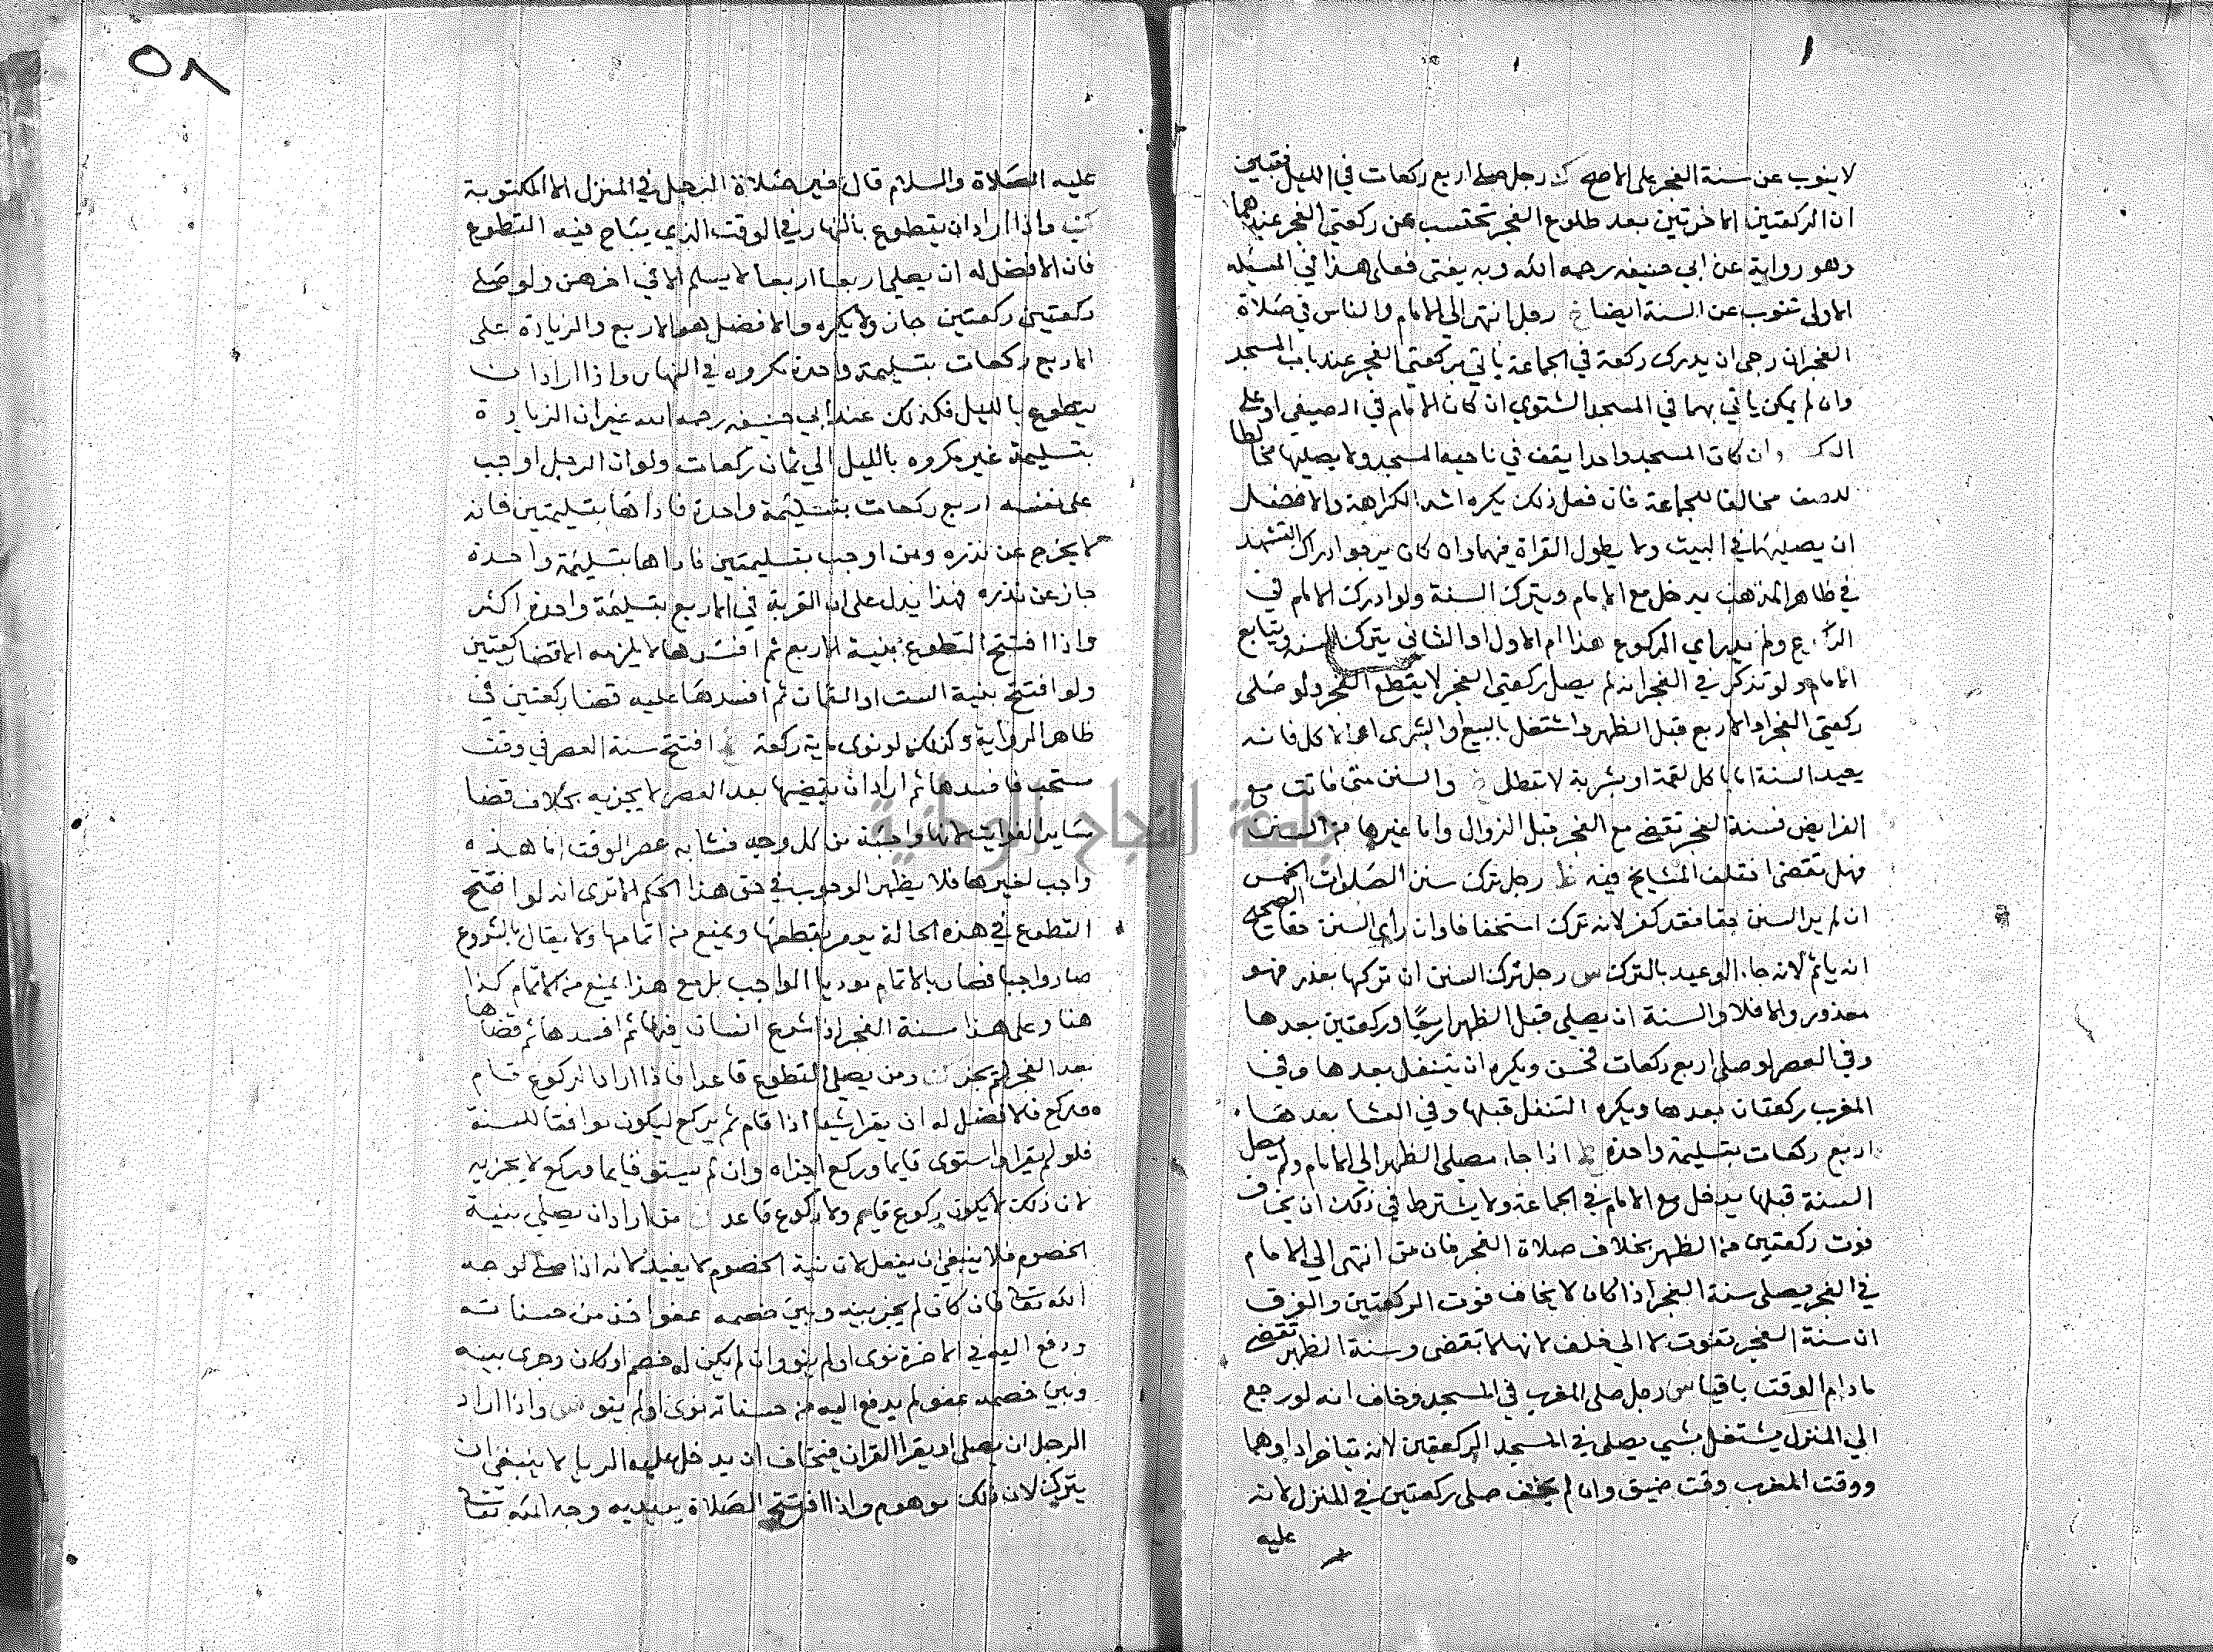 لا ينوب عن سنة الفجر على الاصح ك رجل صلى اربع ركعات في الليل فتبين
ان الركعتين الاخرتين بعد طلوع الفجر تحتسب عن ركعتي الفجر عندهما
وهو رواية عن ابي حنيفه رحمه الله وبه يفتى فعلى هذا في المسئله
الاولى تنوب عن السنة ايضا رجل انتهى الى الامام والناس في صلاة
الفجر ان رجى ان يدرك ركعة في الجماعة ياتي بركعتي الفجر عند باب المسجد
وان لم يمكن ياتي بهما في المسجد الشتوي ان كان الامام في الصيفي او على
وان كان المسجد واحدا يقف في ناحية المسجد ولا يصليها مخالطا
للصف مخالفا للجماعة فان فعل ذلك يكره اشد الكراهة والافضل
ان يصليها في البيت ولا يطول القراة فيهما وان كان يرجوا ادراك التشهد
في ظاهر المذهب يدخل مع الامام ويترك السنة ولو ادرك الامام في
الركوع ولم يدر اي الركوع هذا ام الاول او الثاني يترك السنه ويتابع
الامام ولو تذكر في الفجر انه لم يصل ركعتي الفجر لا يقطع الفجر ولو صلى
ركعتي الفجر او الاربع قبل الظهر واشتغل بالبيع والشرى او الاكل فانه
يعيد السنة اما باكل لقمة او بشربة لا تبطل والسنن متى فاتت مع
الفرايض فسنة الفجر تقضى مع الفجر قبل الزوال واما غيرها من السنن
فهل تقضى اختلف المشايخ فيه ظ رجل ترك سنن الصلوات الخمس
ان لم ير السنن حقا فقد كفر لانه ترك استخفافا وان رأى السنن حقا الصحيح
انه ياثم لانه جاء الوعيد بالترك س رجل ترك السنن ان تركها بعذر فهو
معذور والا فلا والسنة ان يصلى قبل الظهر اربعا وركعتين بعدها
وفي العصر لو صلى اربع ركعات فحسن ويكره ان يتنفل بعدها وفي
المغرب ركعتان بعدها ويكره التنفل قبلها وفي العشا بعدها
اربع ركعات بتسليمة واحدة اذا جاء مصلي الظهر الى الامام ولم يصل
السنة قبلها يدخل مع الامام في الجماعة ولا يشترط في ذلك ان يخاف
فوت ركعتين من الظهر بخلاف صلاة الفجر فان من انتهى الى الامام
في الفجر يصلى سنة الفجر اذا كان لا يخاف فوت الركعتين والفرق
ان سنة الفجر تفوت لا الى خلف لانها لا تقضى وسنة الظهر تقضى
مادام الوقت باقيا س رجل صلى المغرب في المسجد وخاف انه لو رجع
الى المنزل يشتغل بشي يصلى في المسجد الركعتين لانه تباخر اداوهما
ووقت المغرب وقت ضيق وان لم يخف صلى ركعتين في المنزل لانه
عليه
٥٨
عليه الصلاة والسلام قال خير صلاة الرجل في المنزل الا المكتوبة
واذا اراد ان يتطوع بالنهار في الوقت الذي يباح فيه التطوع
فان الافضل له ان يصلى اربعا اربعا لا يسلم الا في اخرهن ولو صلى
ركعتين ركعتين جاز ولا يكره والافضل هو الاربع والزيادة على
الاربع ركعات بتسليمة واحدة مكروه في النهار واذا اراد ان
يتطوع بالليل فكذلك عند ابي حنيفه رحمه الله غير ان الزيادة
بتسليمة غير مكروه بالليل الى ثمان ركعات ولو ان الرجل اوجب
على نفسه اربع ركعات بتسليمة واحدة فاداها بتسليمتين فانه
لا يخرج عن نذره ومن اوجب بتسليمتين فاداها بتسليمة واحدة
جاز عن نذره فهذا يدل على ان القربة في الاربع بتسليمة واحدة اكثر
واذا افتتح التطوع بنية الاربع ثم افسدها لا يلزمه الا قضا ركعتين
ولو افتتح بنية الست او الثمان ثم افسدها عليه قضا ركعتين في
ظاهر الرواية وكذلك لو نوى ماية ركعة افتتح سنة العصر في وقت
مستحب فافسدها ثم اراد ان يقضيها بعد العصر لا يجزيه بخلاف قضا
ساير الفوايت لانها واجبة من كل وجه فشابه عصر الوقت اما هذه
واجب لغيرها فلا يظهر الوجوب في حق هذا الحكم الا ترى انه لو افتتح
التطوع في هذه الحالة يومر بقطعها ويمنع من اتمامها ولا يقال بالشروع
صار واجبا فصار بالاتمام موديا الواجب بل مع هذا يمنع من الاتمام كذا
هنا وعلى هذا سنة الفجر اذا شرع انسان فيها ثم افسدها ثم قضاها
بعد الفجر لم يجز ومن يصلى التطوع قاعدا فاذا اراد الركوع قام
وركع فالافضل له ان يقرا شيا اذا قام ثم يركع ليكون موافقا للسنة
فلو لم يقرا واستوى قايما وركع اجزاه وان لم يستو قايما وركع لا يجزيه
لان ذلك لا يكون ركوع قايم ولا ركوع قاعد من اراد ان يصلى بنية
الخصوم فلا ينبغي ان يفعل لان نية الخصوم لا يفيد لانه اذا صلى لوجه
الله تعالى فان كان لم يجز بينه وبين خصمه عفوا خذ من حسناته
ودفع اليه في الاخرة نوى او لم ينو وان لم يكن له خصم او كان وجرى بينه
وبين خصمه عفو لم يدفع اليه من حسناته نوى او لم ينو س واذا اراد
الرجل ان يصلى او يقرا القران فيخاف ان يدخل عليه الريا لا ينبغي ان
يترك لان ذلك موهوم واذا افتتح الصلاة يريد به وجه الله تعالى
جامعة النجاح الوطنية